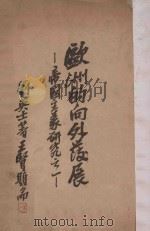 歐洲的向外發展
—帝國主義研究之一—
士著 王